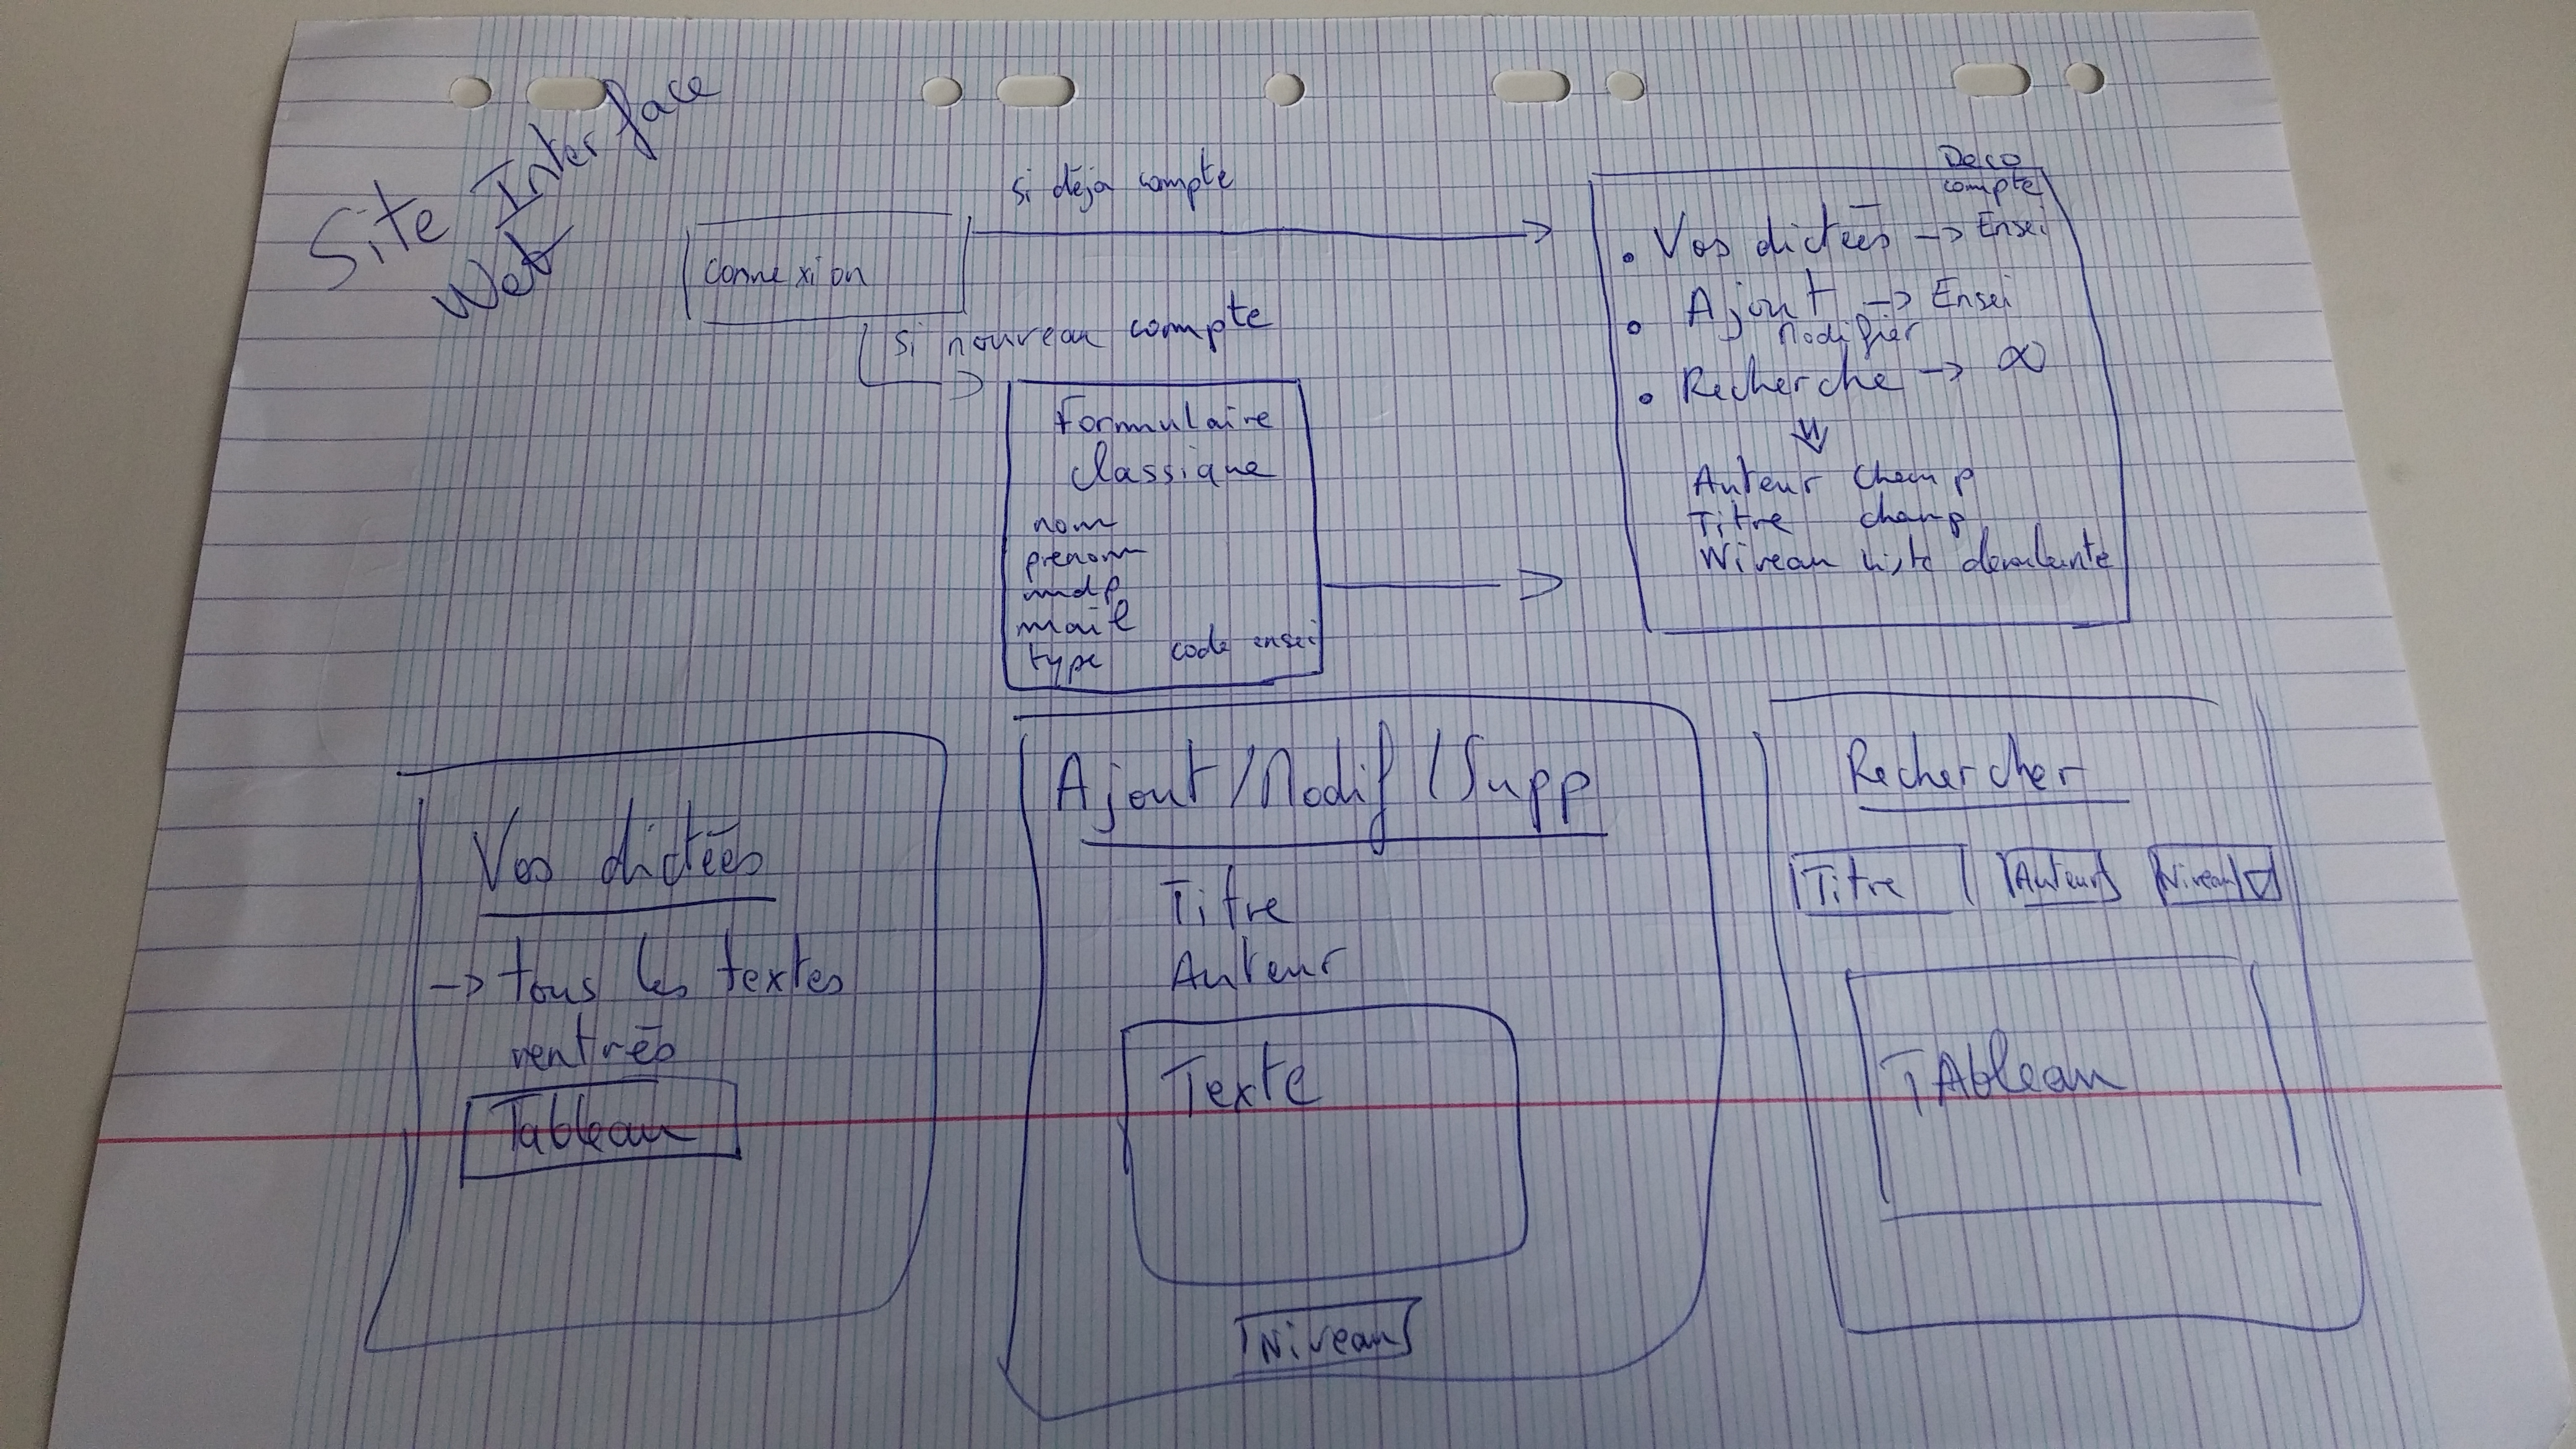 Site Interface
Web
si déja compte
connexion
si nouveau compte
Formulaire
classique
nom
prenom
mdp
mail
type code ensei
Deco
compte
• Vos dictées -> Ensei
• Ajout -> Ensei
Modifier
• Recherche -> ∞
Auteur champ
Titre champ
Niveau liste deroulante
Vos dictées
-> tous les textes
rentrés
Tableau
Ajout/Modif/Supp
Titre
Auteur
Texte
Niveau
Rechercher
Titre Auteur Niveau
TAbleau